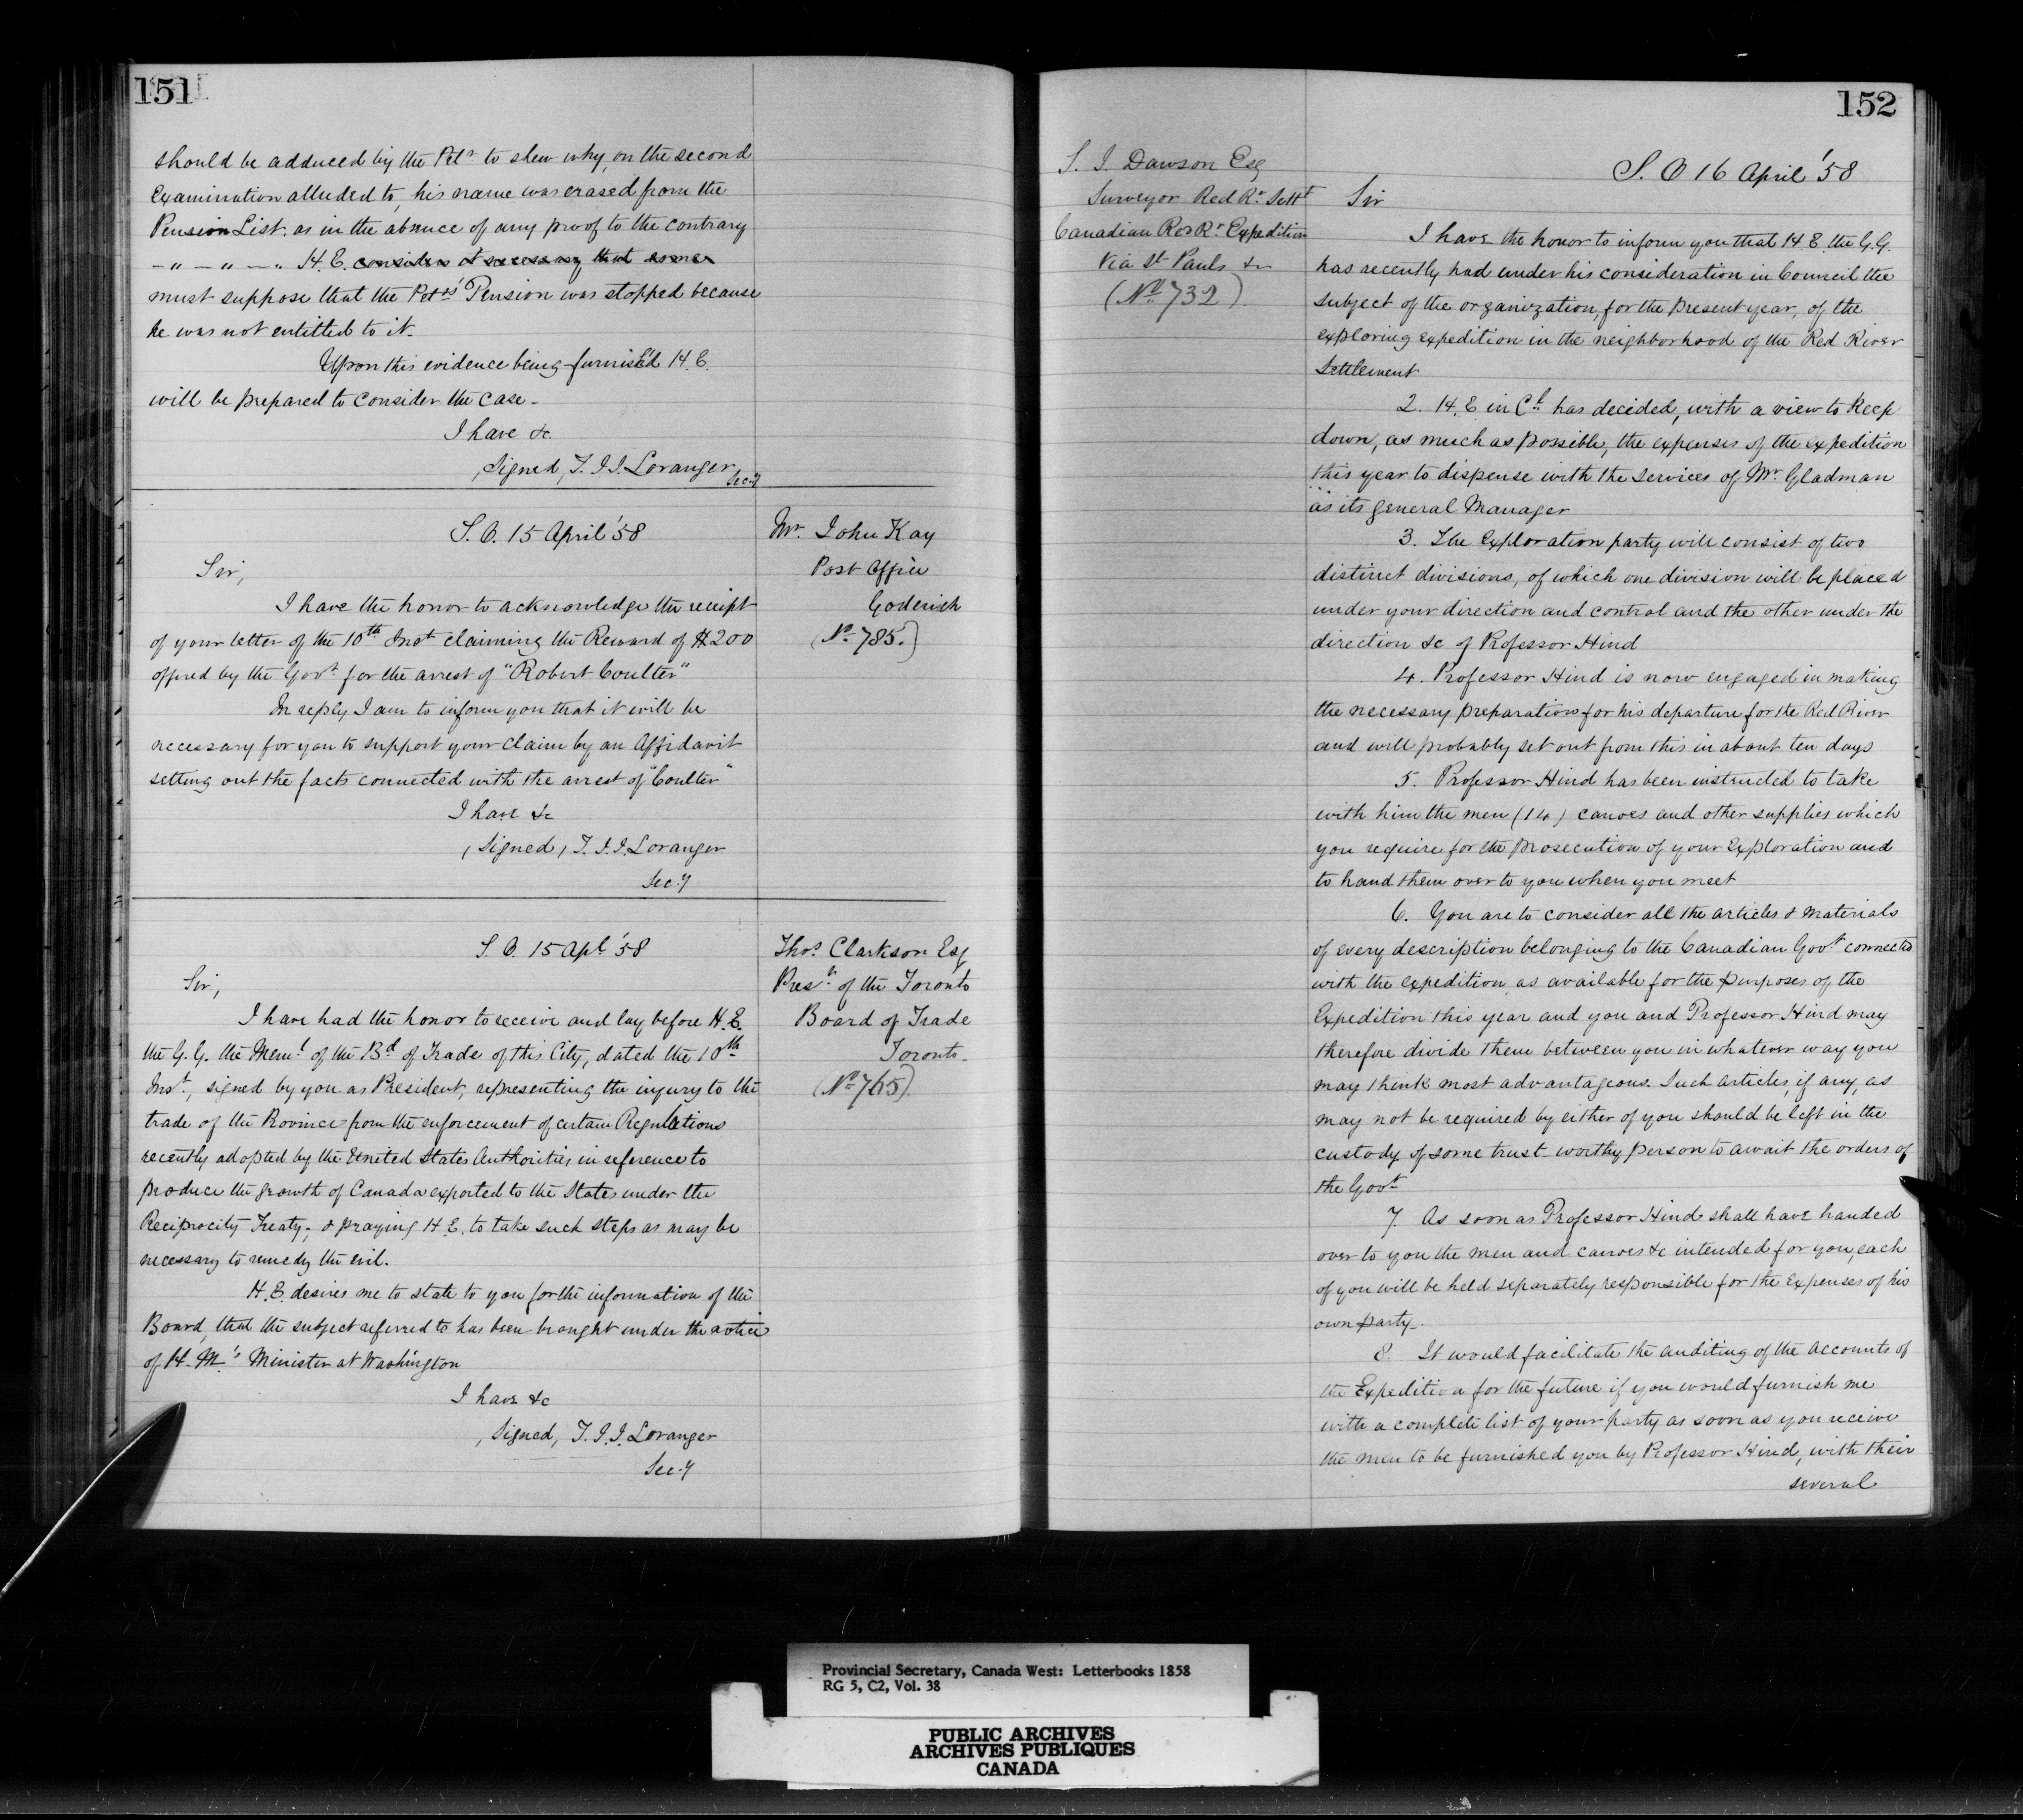 151
should be adduced by the Petr to shew why, on the second
Examination alluded to, his name was erased from the
Pension List. as in the absence of any proof to the contrary
- " - " - " H. E. considers it necessary that some
must suppose that the Petrs' Pension was stopped because
he was not entitled to it.
Upon this evidence being furnis'd H. E.
will be prepared to consider the case -
I have &c.
(Signed) T. J. J. Loranger
Sec.y
S. O. 15 April '58
Mr. John Kay
Post Office
Goderich
(No 785.)
Sir,
I have the honor to acknowledge the receipt
of your letter of the 10th Inst claiming the Reward of $200
offered by the Govt for the arrest of "Robert Coulter"
In reply I am to inform you that it will be
necessary for you to support your claim by an Affidavit
setting out the facts connected with the arrest of "Coulter"
I have &c
(Signed) T. J. J. Loranger
Sec.y
S. O. 15 Apl. '58
Thos. Clarkson Esq
Prest. of the Toronto
Board of Trade
Toronto-
(No 765).
Sir,
I have had the honor to receive and lay before H. E.
the G. G. the Meml of the Bd of Trade of this City, dated the 10th
Inst., signed by you as President, representing the injury to the
trade of the Province from the enforcement of certain Regulations
recently adopted by the United States Authorities in reference to
produce the growth of Canada exported to the States under the
Reciprocity Treaty, & praying H. E. to take such steps as may be
necessary to remedy the evil.
H. E. desires me to state to you for the information of the
Board, that the subject referred to has been brought under the notice
of H. M.'s Minister at Washington
I have &c
(Signed) T. J. J. Loranger
Sec.y
152
S. J. Dawson Esq
Surveyor Red Rr. Settt
Canadian Red Rr Expedition
Via St Pauls &c
(No 732).
S. O 16 April '58
Sir
I have the honor to inform you that H. E. the G. G.
has recently had under his consideration in Council the
subject of the organization, for the present year, of the
exploring expedition in the neighborhood of the Red River
Settlement
2. H. E in Cl. has decided, with a view to keep
down, as much as possible, the expenses of the expedition
this year to dispense with the services of Mr. Gladman
as its general Manager
3. The Exploration party will consist of two
distinct divisions, of which one division will be placed
under your direction and control and the other under the
direction &c of Professor Hind
4. Professor Hind is now engaged in making
the necessary preparations for his departure for the Red River
and will probably set out from this in about ten days
5. Professor Hind has been instructed to take
with him the men (14) canoes and other supplies which
you require for the prosecution of your Exploration and
to hand them over to you when you meet
6. You are to consider all the articles & materials
of every description belonging to the Canadian Govt. connected
with the expedition, as available for the purposes of the
Expedition this year and you and Professor Hind may
therefore divide them between you in whatever way you
may think most advantageous. Such articles, if any, as
may not be required by either of you should be left in the
custody of some trust-worthy person to await the orders of
the Govt
7 As soon as Professor Hind shall have handed
over to you the men and canoes &c intended for you, each
of you will be held separately responsible for the expenses of his
own party.
8. It would facilitate the auditing of the accounts of
the Expedition for the future if you would furnish me
with a complete list of your party as soon as you receive
the men to be furnished you by Professor Hind, with their
several
Provincial Secretary, Canada West: Letterbooks 1858
RG 5, C2, Vol. 38
PUBLIC ARCHIVES
ARCHIVES PUBLIQUES
CANADA